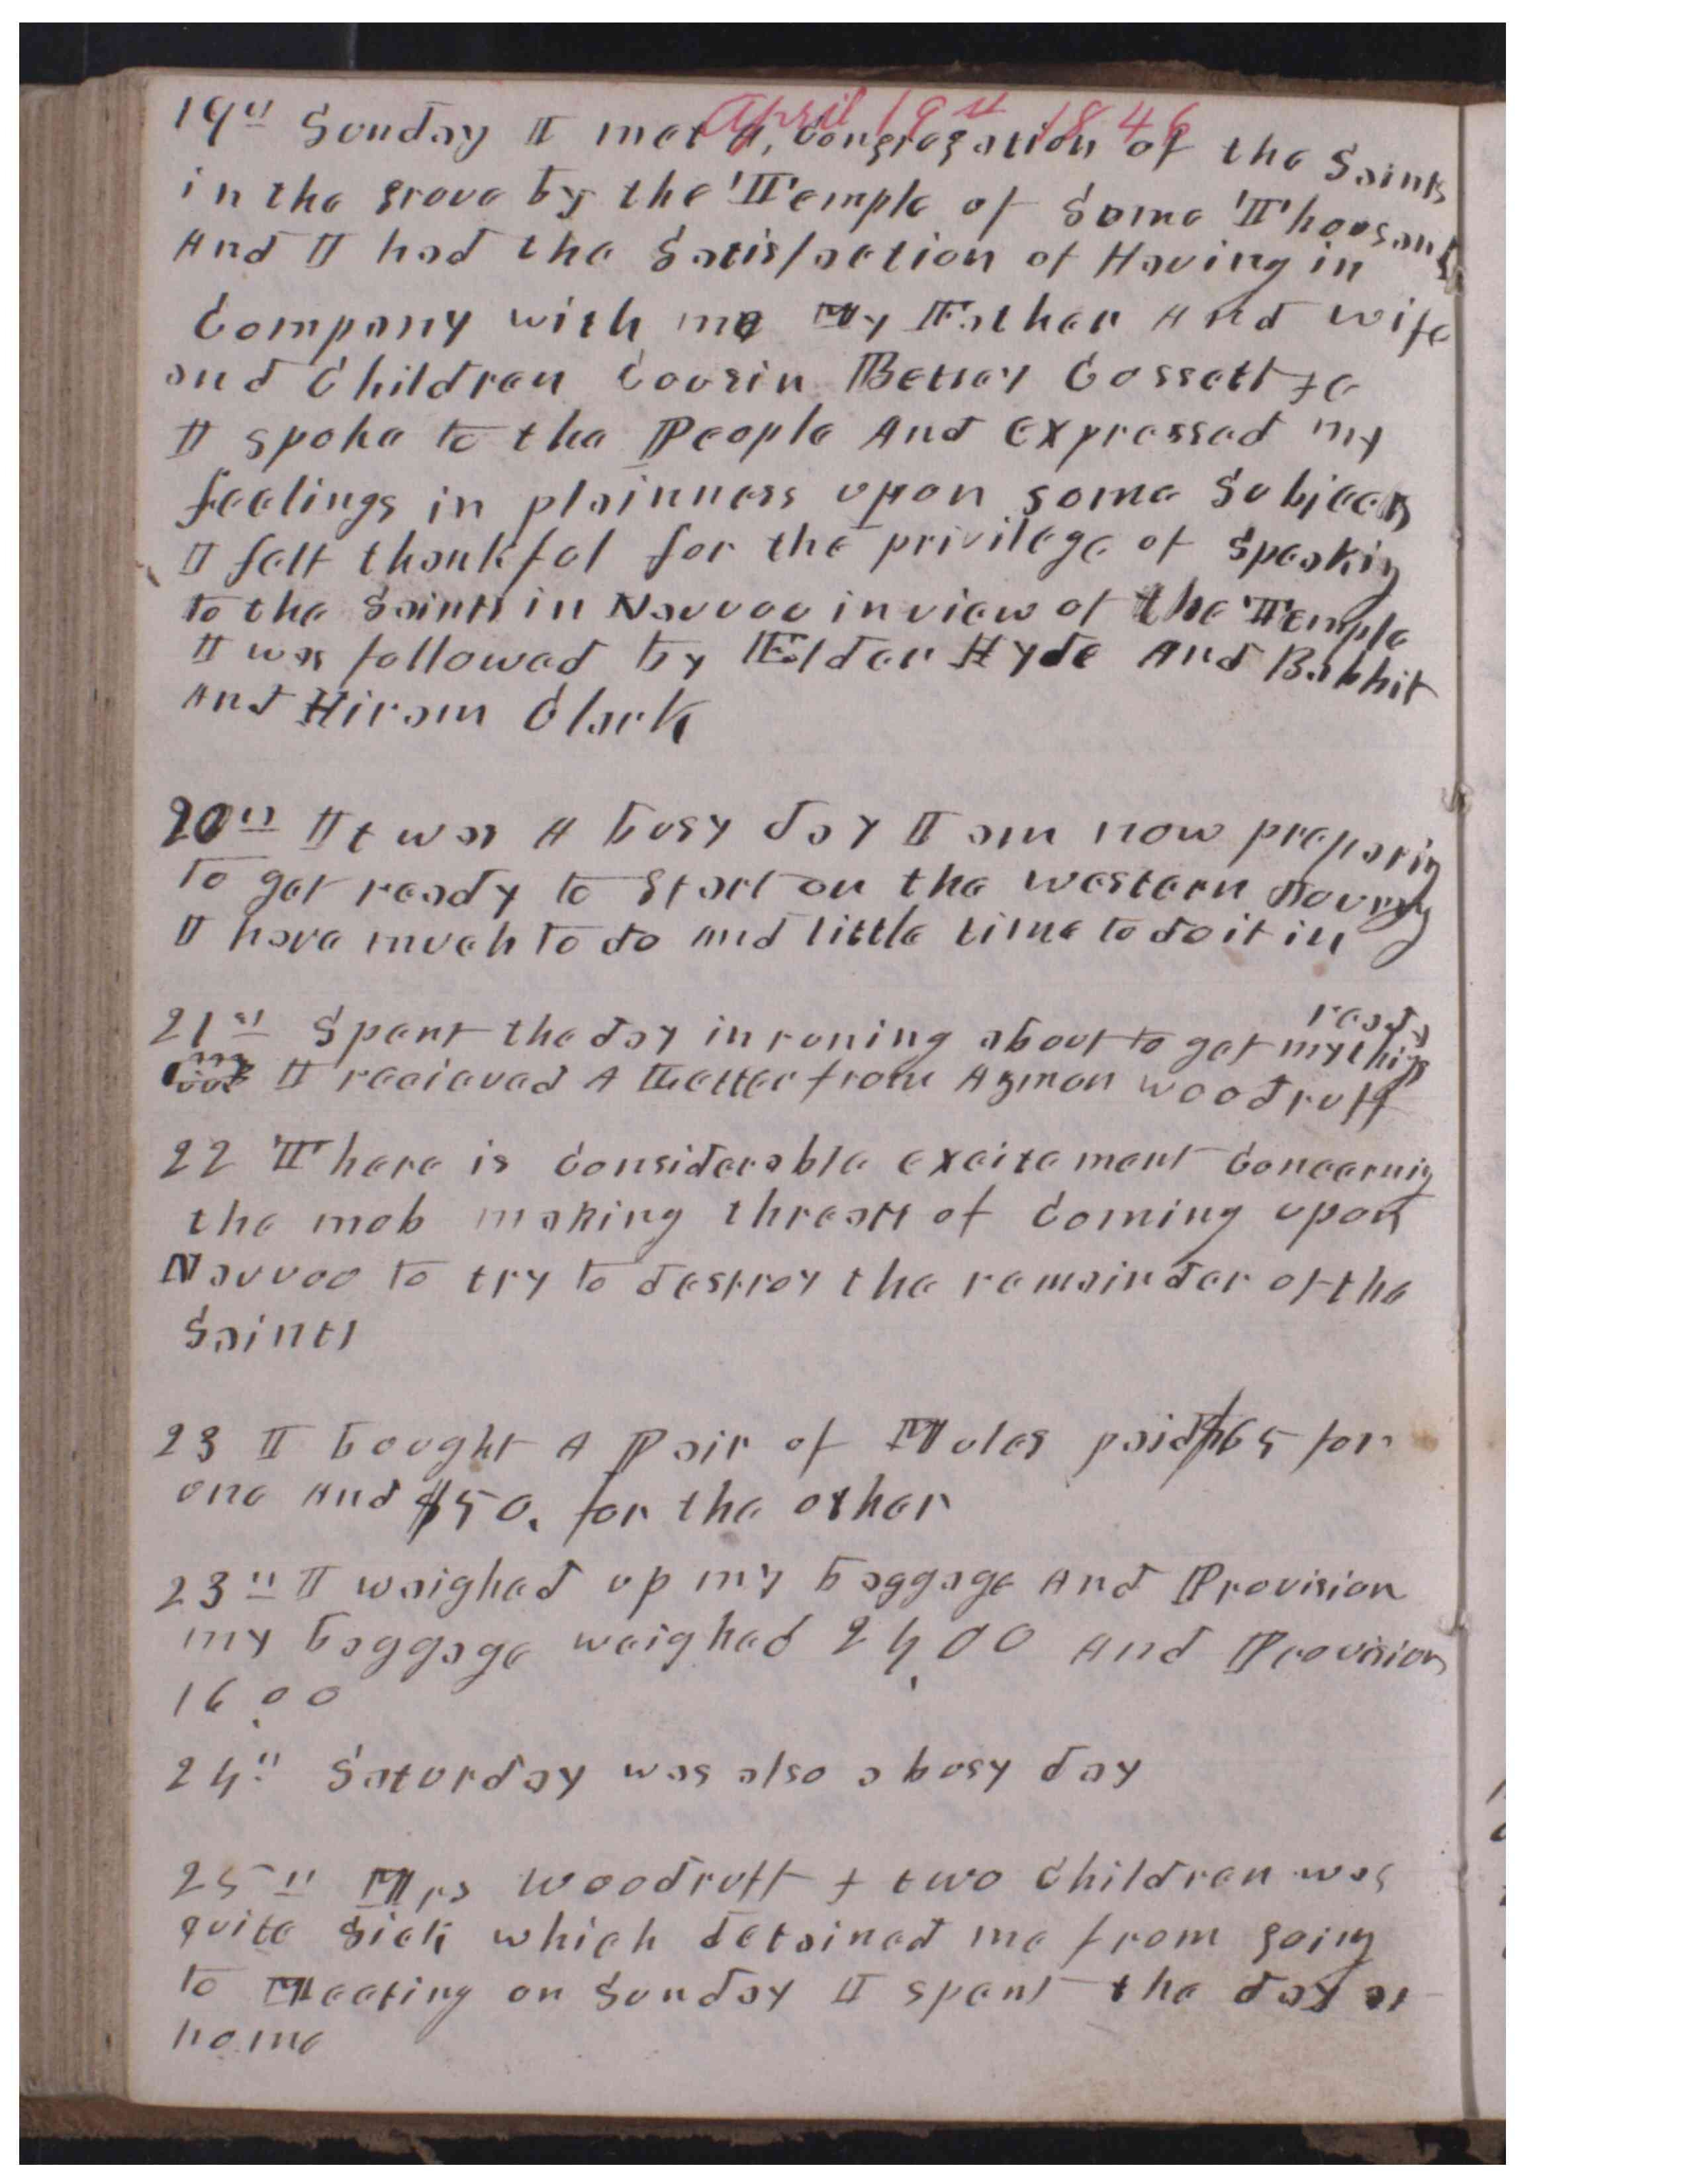 April 19th 1846
19th Sunday I met A, Congregation of the Saints
in the grove by the Temple of Some Thousands
And I had the Satisfaction of Having in
Company with me My Father And wife
and Children Cousin Betsey Cossett &c
I spoke to the People And expressed my
feelings in plainness upon some Subjects
I felt thankful for the privilege of Speaking
to the Saints in Nauvoo in view of the Temple
I was followed by Elder Hyde And Babbit
And Hiram Clark
20th It was A busy day I am now preparing
to get ready to Start on the western Journey
I have much to do and little time to do it in
21st Spent the day in runing about to get my things
ready
I recieved A Letter from Azmon Woodruff
22 There is Considerable excitement Concerning
the mob making threats of Coming upon
Nauvoo to try to destroy the remainder of the
Saints
23 I bought A Pair of Mules paid $65 for
one And $50. for the other
23rd I weighed up my baggage And Provision
my baggage weighed 24,00 And Provision
16,00
24th Saturday was also a busy day
25th Mrs Woodruff & two Children was
quite Sick which detained me from going
to Meeting on Sunday I spent the day at
home